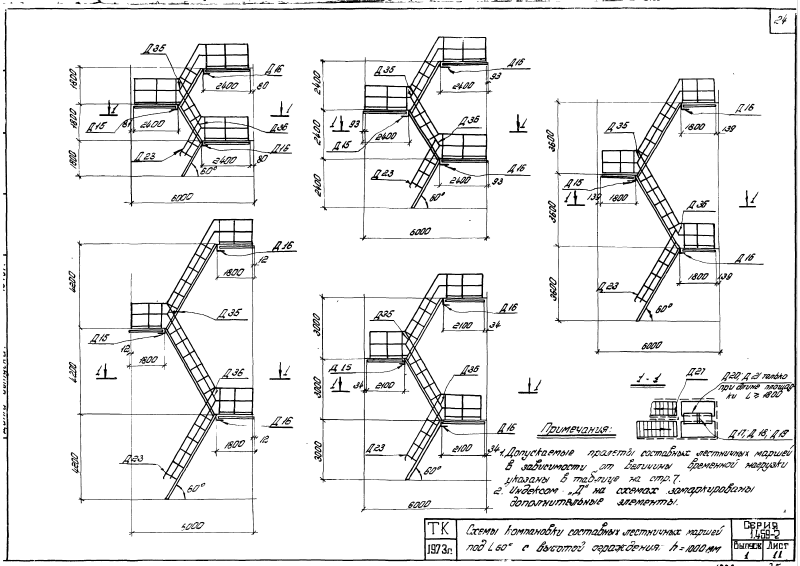 24
Д35
Д16
2400
80
1800
1800
1800
1
1
Д15
81
2400
Д36
Д23
Д16
2400
80
60°
6000
Д35
Д16
2400
93
2400
2400
2400
1
93
1
Д15
2400
Д36
Д23
Д16
2400
93
60°
6000
Д16
1800
139
3600
3600
3600
Д35
Д15
139
1800
1
1
Д36
Д16
1800
139
Д23
60°
6000
Д16
12
1800
4200
4200
4200
Д35
Д15
12
1800
1
1
Д36
Д16
12
1800
Д23
60°
5000
Д16
2100
34
3000
3000
3000
Д35
Д15
1
34
2100
1
Д36
Д16
2100
34
Д23
60°
6000
1 - 1
Д21
Д20, Д21 только
при длине площад-
ки L ≥ 1800
Д17, Д18, Д19
Примечания:
1. Допускаемые пролеты составных лестничных маршей
в зависимости от величины временной нагрузки
указаны в таблице на стр. 7.
2. Индексом „Д" на схемах замаркированы
дополнительные элементы.
ТК
1973г.
Схемы компановки составных лестничных маршей
под ∠60° с высотой ограждения h=1000мм
Серия
1.459-2
Выпуск
1
Лист
11